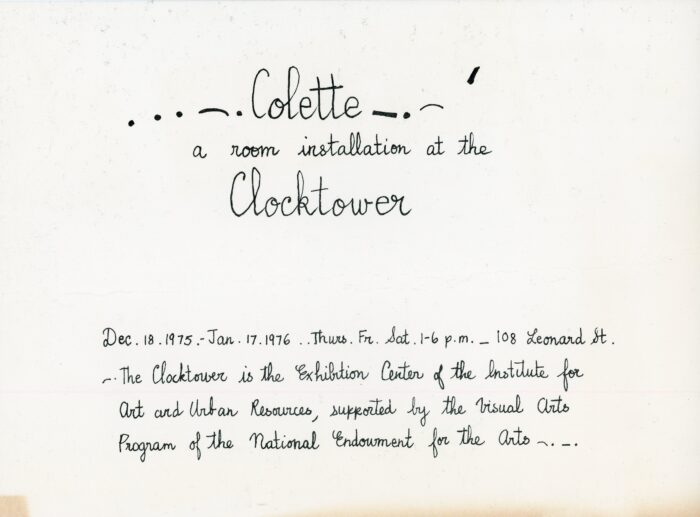 . . . ⁓. Colette –. ⁓ '
a room installation at the
Clocktower
Dec. 18. 1975.-Jan. 17. 1976 ..Thurs. Fr. Sat. 1-6 p.m. – 108 Leonard St.
⁓. The Clocktower is the Exhibition Center of the Institute for
Art and Urban Resources, supported by the Visual Arts
Program of the National Endowment for the Arts ⁓. –.